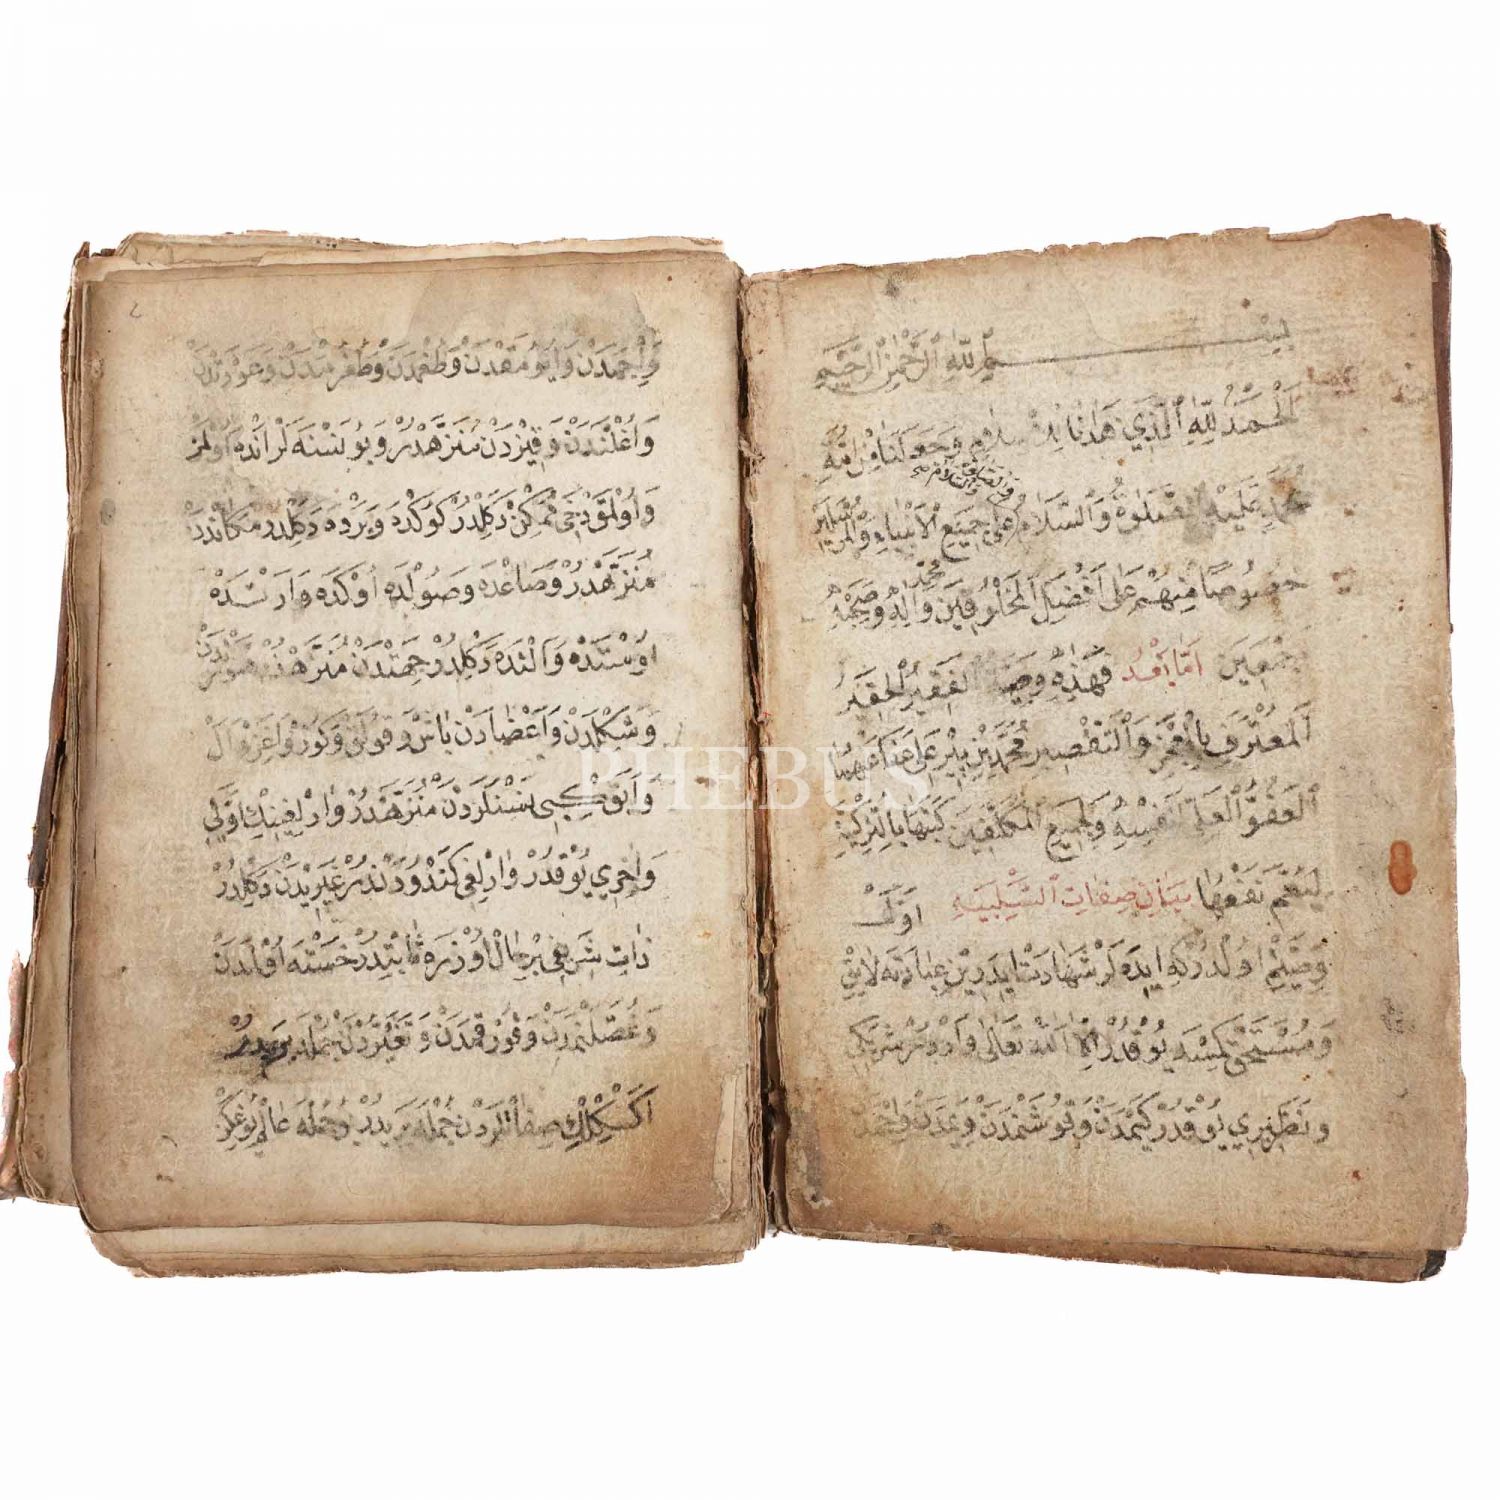 بسم الله الرحمن الرحيم
اَلْحَمْدُ لِلّٰهِ الَّذِي هَدَانَا لِلْاِسْلَامِ وَجَعَلَنَا مِنْ اُمَّةِ
مُحَمَّدٍ عَلَيْهِ الصَّلٰوةُ وَالسَّلَامُ عَلٰى جَمِيعِ الْاَنْبِيَاءِ وَالْمُرْسَلِينَ
خُصُوصًا مِنْهُمْ عَلٰى اَفْضَلِ الْمَخْلُوقِينَ مُحَمَّدٍ وَاٰلِهِ وَصَحْبِهِ
اَجْمَعِينَ اَمَّا بَعْدُ فَهٰذِهِ وَصِيَّةُ الْفَقِيرِ الْحَقِيرِ
اَلْمُعْتَرِفِ بِالْعَجْزِ وَالتَّقْصِيرِ مُحَمَّدِ بْنِ پِيرْ عَلِي عَفَا عَنْهُمَا
الْعَفُوُّ الْعَلِيُّ لِنَفْسِهِ وَلِجَمِيعِ الْمُكَلَّفِينَ كَتَبَهَا بِالتُّرْكِيَّةِ
لِيَعُمَّ نَفْعُهَا بَيَانِ صِفَاتِ السَّلْبِيَّه اَوَّلْ
وَصِيَّتِمْ اُولْدُرْكِه اِيدَه لَرْ شَهَادَتْ ايدرين عِبَادَتَه لَايِقْ
وَمُسْتَحَقْ كِمْسَه يُوقْدُرْ اِلَّا اَللّٰهُ تَعَالٰى وَارْدُرْ شَرِيكِي
وَنَظِيرِي يُوقْدُرْ يِمَكْدَنْ وَاِيچْمَكْدَنْ
وَطُغْمَدَنْ وَطُغُرْمَدَنْ
وَاُغْلَنْدَنْ وَقِيزْدَنْ مُنَزَّهْدُرْ وَبُو نَسْنَه لَرْ اَنْدَه اُولْمَزْ
وَاُولْمَقْ دَخِي مُمْكِنْ دَكِلْدُرْ كُوكْدَه وَيَرْدَه دَكِلْدُرْ مَكَانْدَنْ
مُنَزَّهْدُرْ وَصَاغْدَه وَصُولْدَه اُوكْدَه وَارْتَدَه
اُوسْتَدَه وَاَلْتَدَه دَكِلْدُرْ جِهَتْدَنْ مُنَزَّهْدُرْ
وَشَكِلْدَنْ وَاَعْضَادَنْ بَاشْ وَقُولَقْ وَكُوزْ وَاَغِزْ وَاَلْ
وَاَيَقْ كِبِي نَسْنَلَرْدَنْ مُنَزَّهْدُرْ وَارْلِغِينِكْ اَوَّلِي
وَاٰخِرِي يُوقْدُرْ وَارْلِغِي كَنْدُودَنْدُرْ غَيْرِيدَنْ دَكِلْدُرْ
ذَاتِ شَرِيفِي بِرْ حَالْ اُوزَرَه ثَابِتْدُرْ خَسْتَه اُولْمَدَنْ
وَغُصَّه لَنْمَدَنْ وَقُورْقْمَدَنْ وَتَغَيُّرْدَنْ جُمْلَه بَرِيدُرْ
اَكْسِكْلِكْ صِفَاتْلَرْدَنْ جُمْلَه بَرِيدُرْ وَجُمْلَه عَالَمْ يُوغِكَنْ